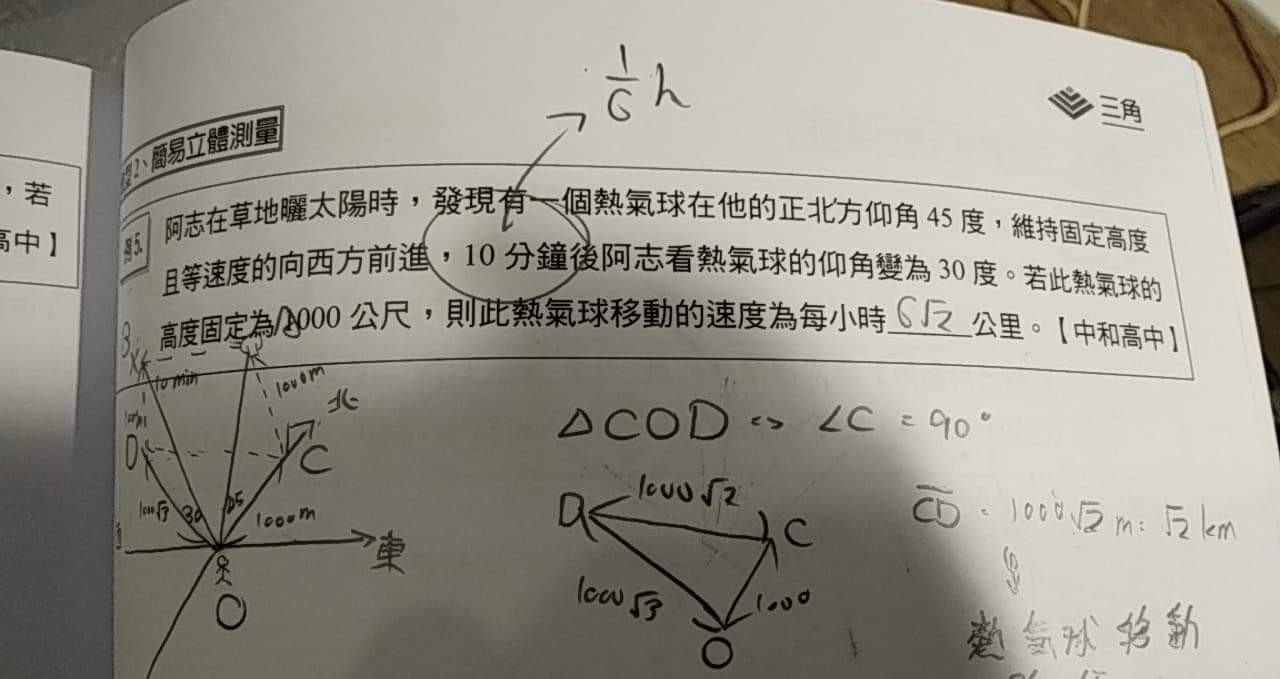 1/6 h
三角
2、簡易立體測量
，若
高中】
例5.
阿志在草地曬太陽時，發現有一個熱氣球在他的正北方仰角 45 度，維持固定高度
且等速度的向西方前進，10 分鐘後阿志看熱氣球的仰角變為 30 度。若此熱氣球的
高度固定為1000 公尺，則此熱氣球移動的速度為每小時6√2公里。【中和高中】
B
10 min
1000m
北
D
C
1000√3
30
45
1000m
東
O
△COD ⇔ ∠C = 90°
1000√2
D
C
1000√3
1000
O
CD = 1000√2 m = √2 km
熱氣球移動